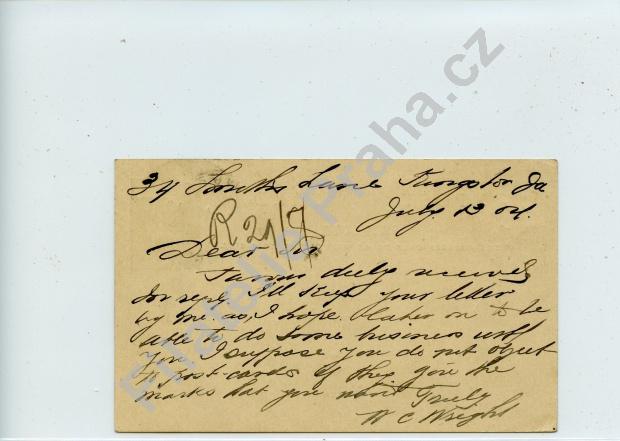 34 Smiths Lane Kingston Ja
July 13 04.
R 21/7
Dear Sir
Yours duly received
for reply I'll keep your letter
by me as, I hope. Later on to be
able to do some business with
you. I suppose you do not object
to post-cards if they give the
marks that you want Truly
W C Wright
Filatelie Praha.cz